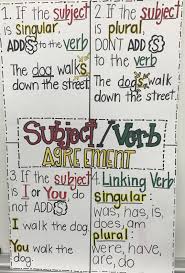 1. If the subject
is singular,
ADD S to the verb
The dog walks
down the street.
2 If the subject
is plural,
DON'T ADD S
to the verb
The dogs walk
down the street.
Subject/Verb
AGREEMENT
3 If the subject
is I or You do
not ADD S
I walk the dog.
You walk the
dog.
4. Linking Verb
singular:
was, has, is,
does, am
plural:
were, have,
are, do